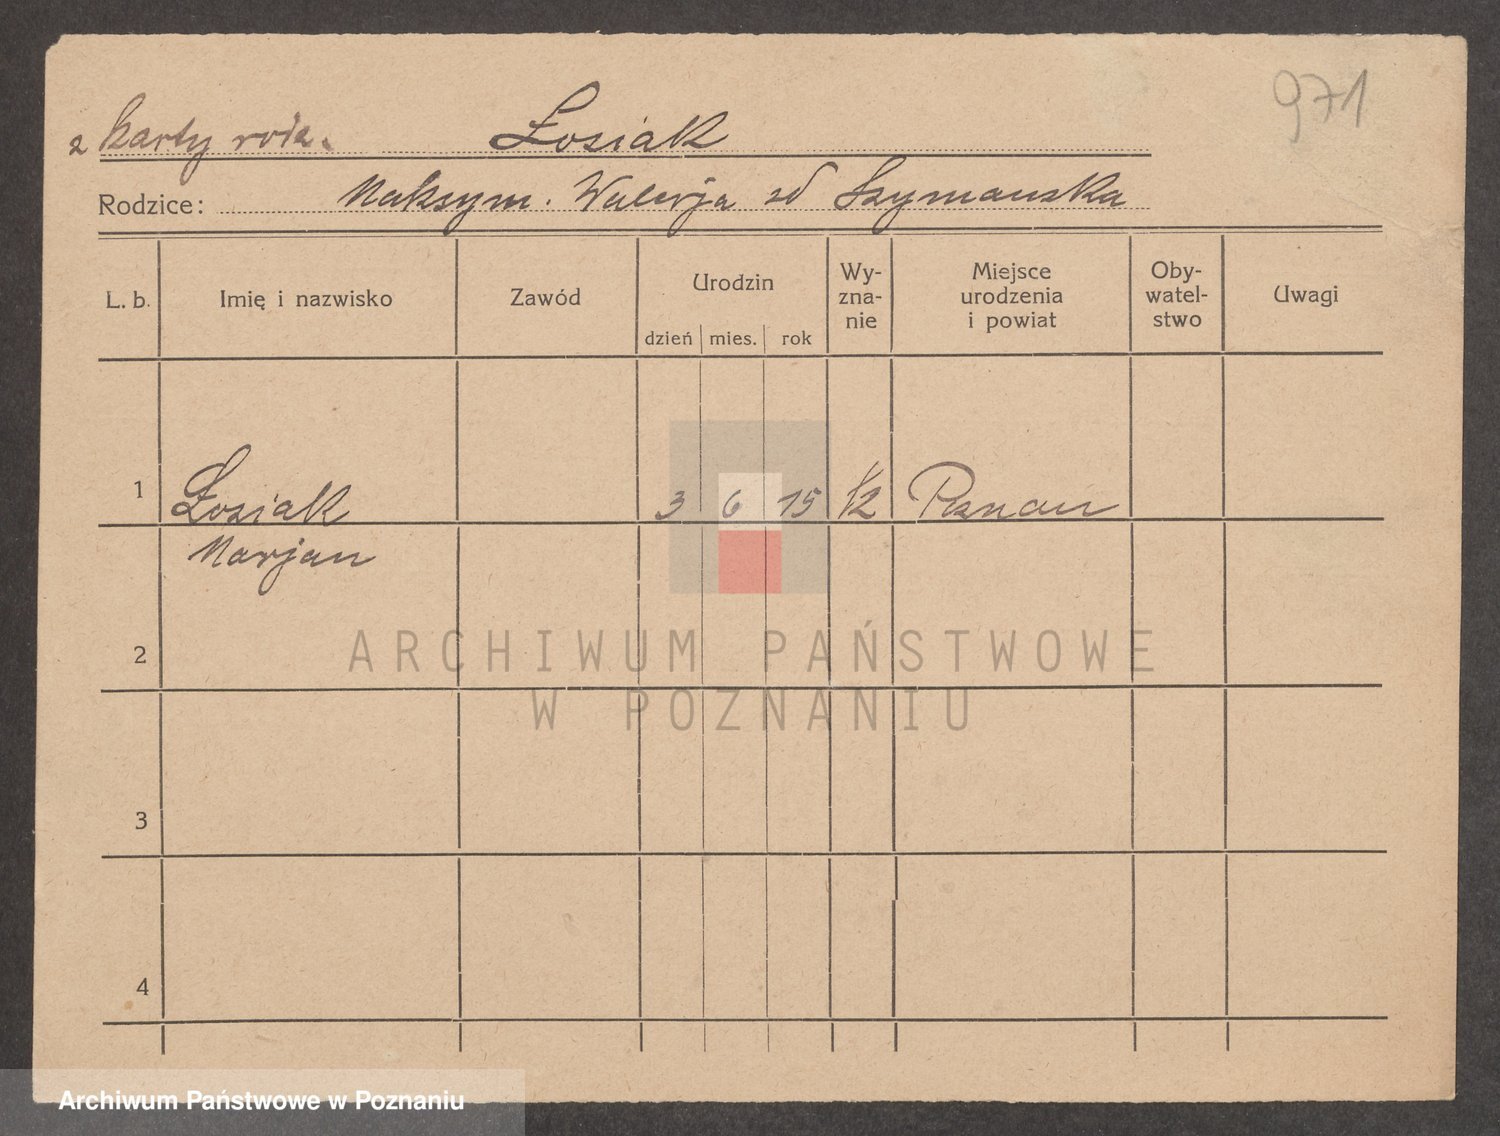 971
z karty rodz. Łosiak
Rodzice: Maksym. Walerja zd Szymanska
L. b. Imię i nazwisko Zawód Urodzin dzień mies. rok Wy-
zna-
nie Miejsce
urodzenia
i powiat Oby-
watel-
stwo Uwagi
1 Łosiak 3 6 15 Poznan
Marjan
2
ARCHIWUM PAŃSTWOWE
W POZNANIU
3
4
Archiwum Państwowe w Poznaniu